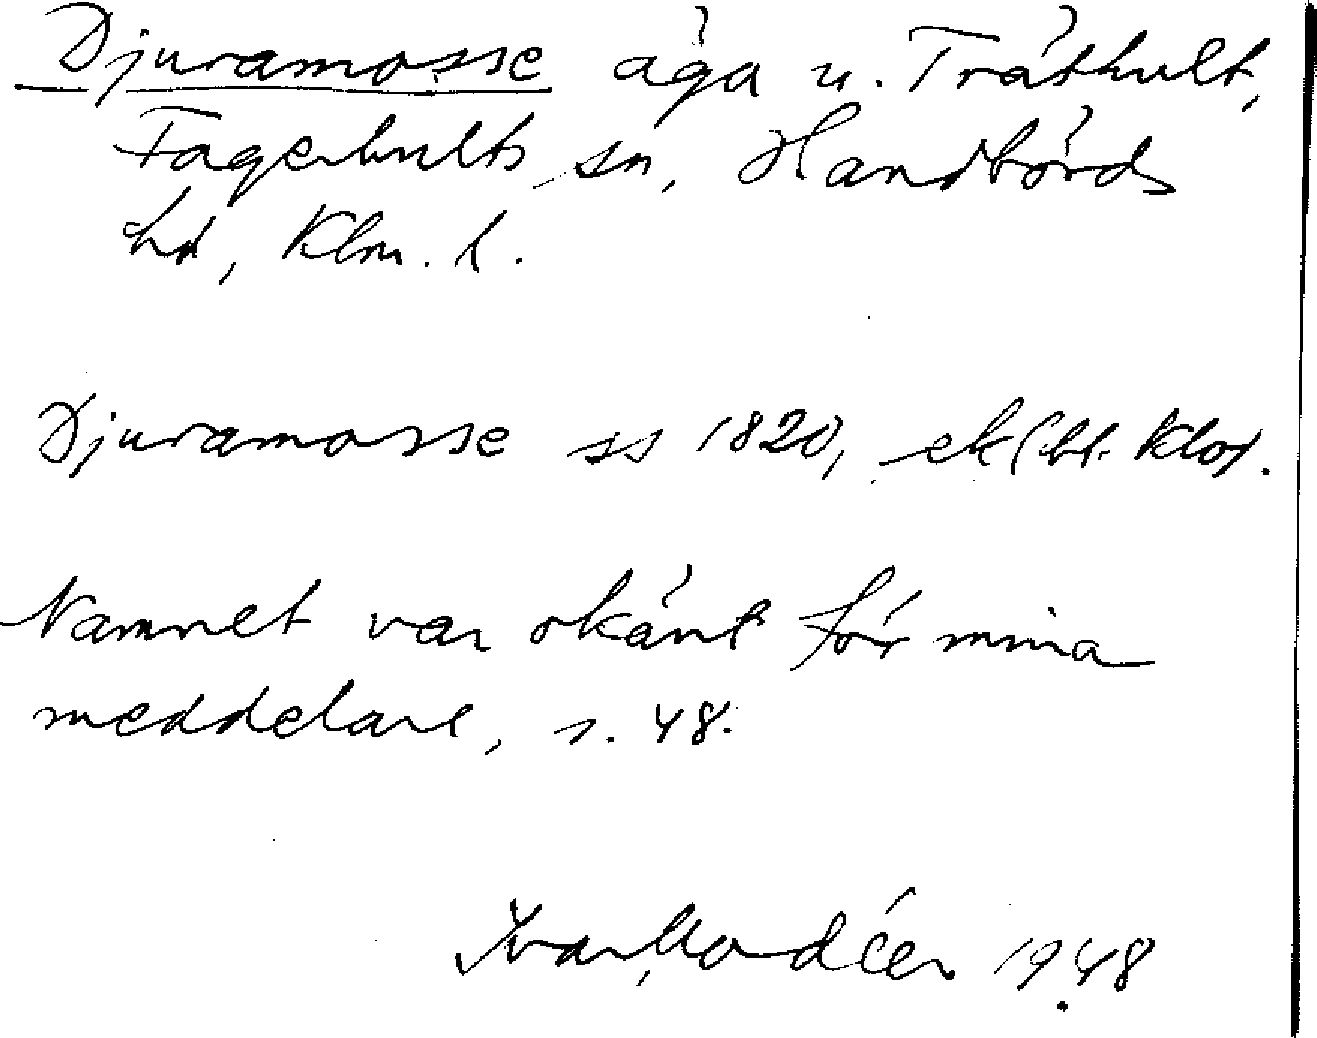 Djuramosse äga u. Träthult,
Fagerhults sn, Handbörds
hd, Klm. l.
Djuramosse ss 1820, ekbl. Kbg.
Namnet var okänt för mina
meddelare, s. 48.
Ivar Modéer 1948